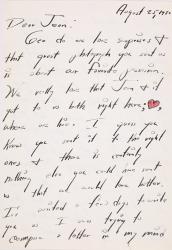 August 25,
Dear Joan:
Gee do we love surprises &
that great photograph you sent us
is about our favorite
We really love that Joan & it
got to us both right here, ❤
where we live. I guess you
knew you sent it to the right
ones & there is certainly
nothing else you could have sent
us that we would love better.
I've waited a few days to write
you as I was trying to
compose a letter in my mind